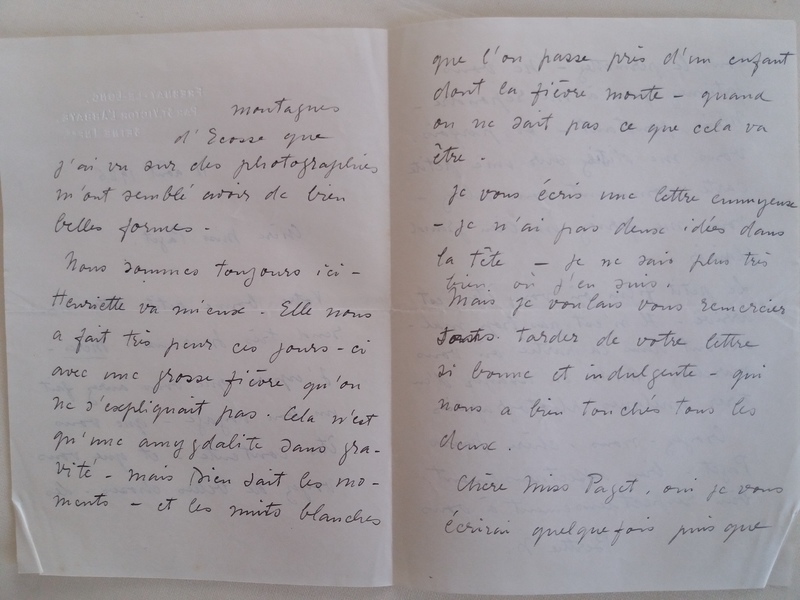 montagnes
d'Ecosse que
j'ai vu sur des photographies
m'ont semblé avoir de bien
belles formes.
Nous sommes toujours ici -
Henriette va mieux. Elle nous
a fait très peur ces jours-ci
avec une grosse fièvre qu'on
ne s'expliquait pas. Cela n'est
qu'une amygdalite sans gra-
vité - mais Dieu sait les mo-
ments - et les nuits blanches
que l'on passe près d'un enfant
dont la fièvre monte - quand
on ne sait pas ce que cela va
être.
Je vous écris une lettre ennuyeuse
- je n'ai pas deux idées dans
la tête - je ne sais plus très
bien où j'en suis.
Mais je voulais vous remercier
tarder de votre lettre
si bonne et indulgente - qui
nous a bien touchés tous les
deux.
Chère Miss Paget, oui je vous
écrirai quelquefois puis que